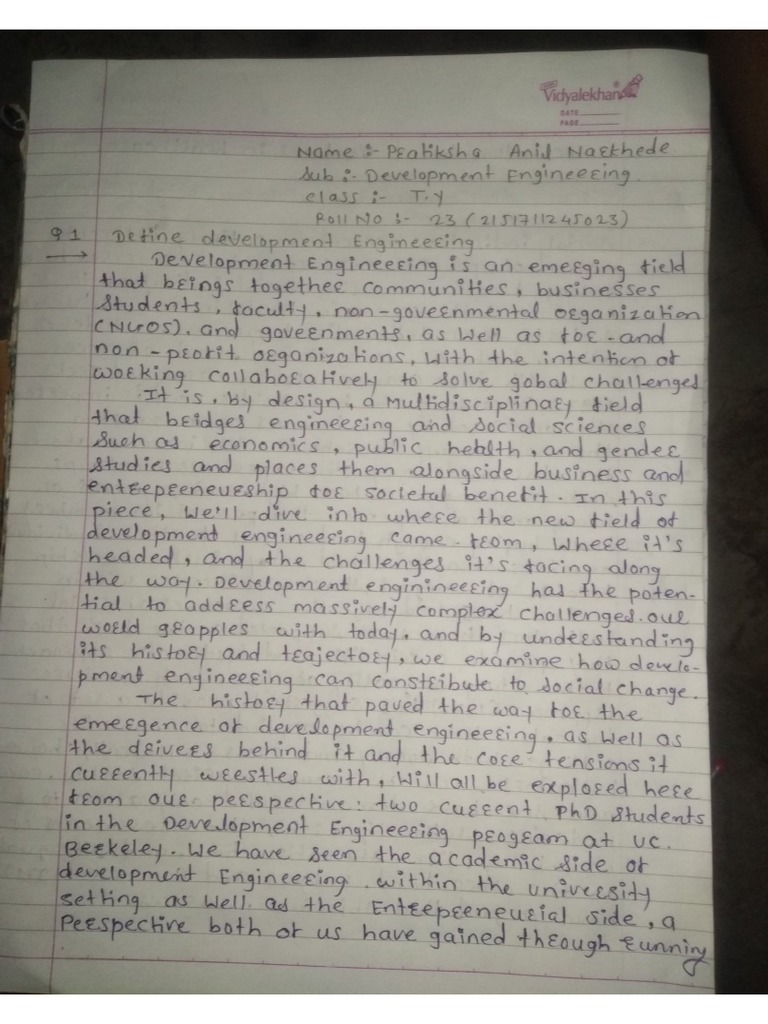 Vidyalekhan
DATE
PAGE
Name :- Pratiksha Anil Narkhede
Sub :- Development Engineering.
Class :- T.Y
Roll No :- 23 (2151711245023)
Q1 Define development Engineering
→ Development Engineering is an emerging field
that brings together communities, businesses
students, faculty, non-governmental organization
(NGOS), and governments, as well as for-and
non-profit organizations, with the intention of
working collaboratively to solve gobal challenges
It is, by design, a Multidisciplinary field
that bridges engineering and social sciences
such as economics, public heblth, and gender
studies and places them alongside business and
entrepreneurship for societal benefit. In this
piece, We'll dive into where the new field of
development engineering came from, Where it's
headed, and the challenges it's facing along
the way. Development enginineering has the poten-
tial to address massively complex challenges. our
world grapples with today, and by understanding
its history and trajectory, we examine how develo-
pment engineering can constribute to social change.
The history that paved the way for the
emergence of development engineering, as well as
the drivers behind it and the core tensions it
currently wrestles with, Will all be explored here
from our perspective: two current PhD students
in the Development Engineering program at UC.
Berkeley. We have seen the academic side of
development Engineering within the university
setting as well as the Entrepreneurial side, a
Perspective both of us have gained through running